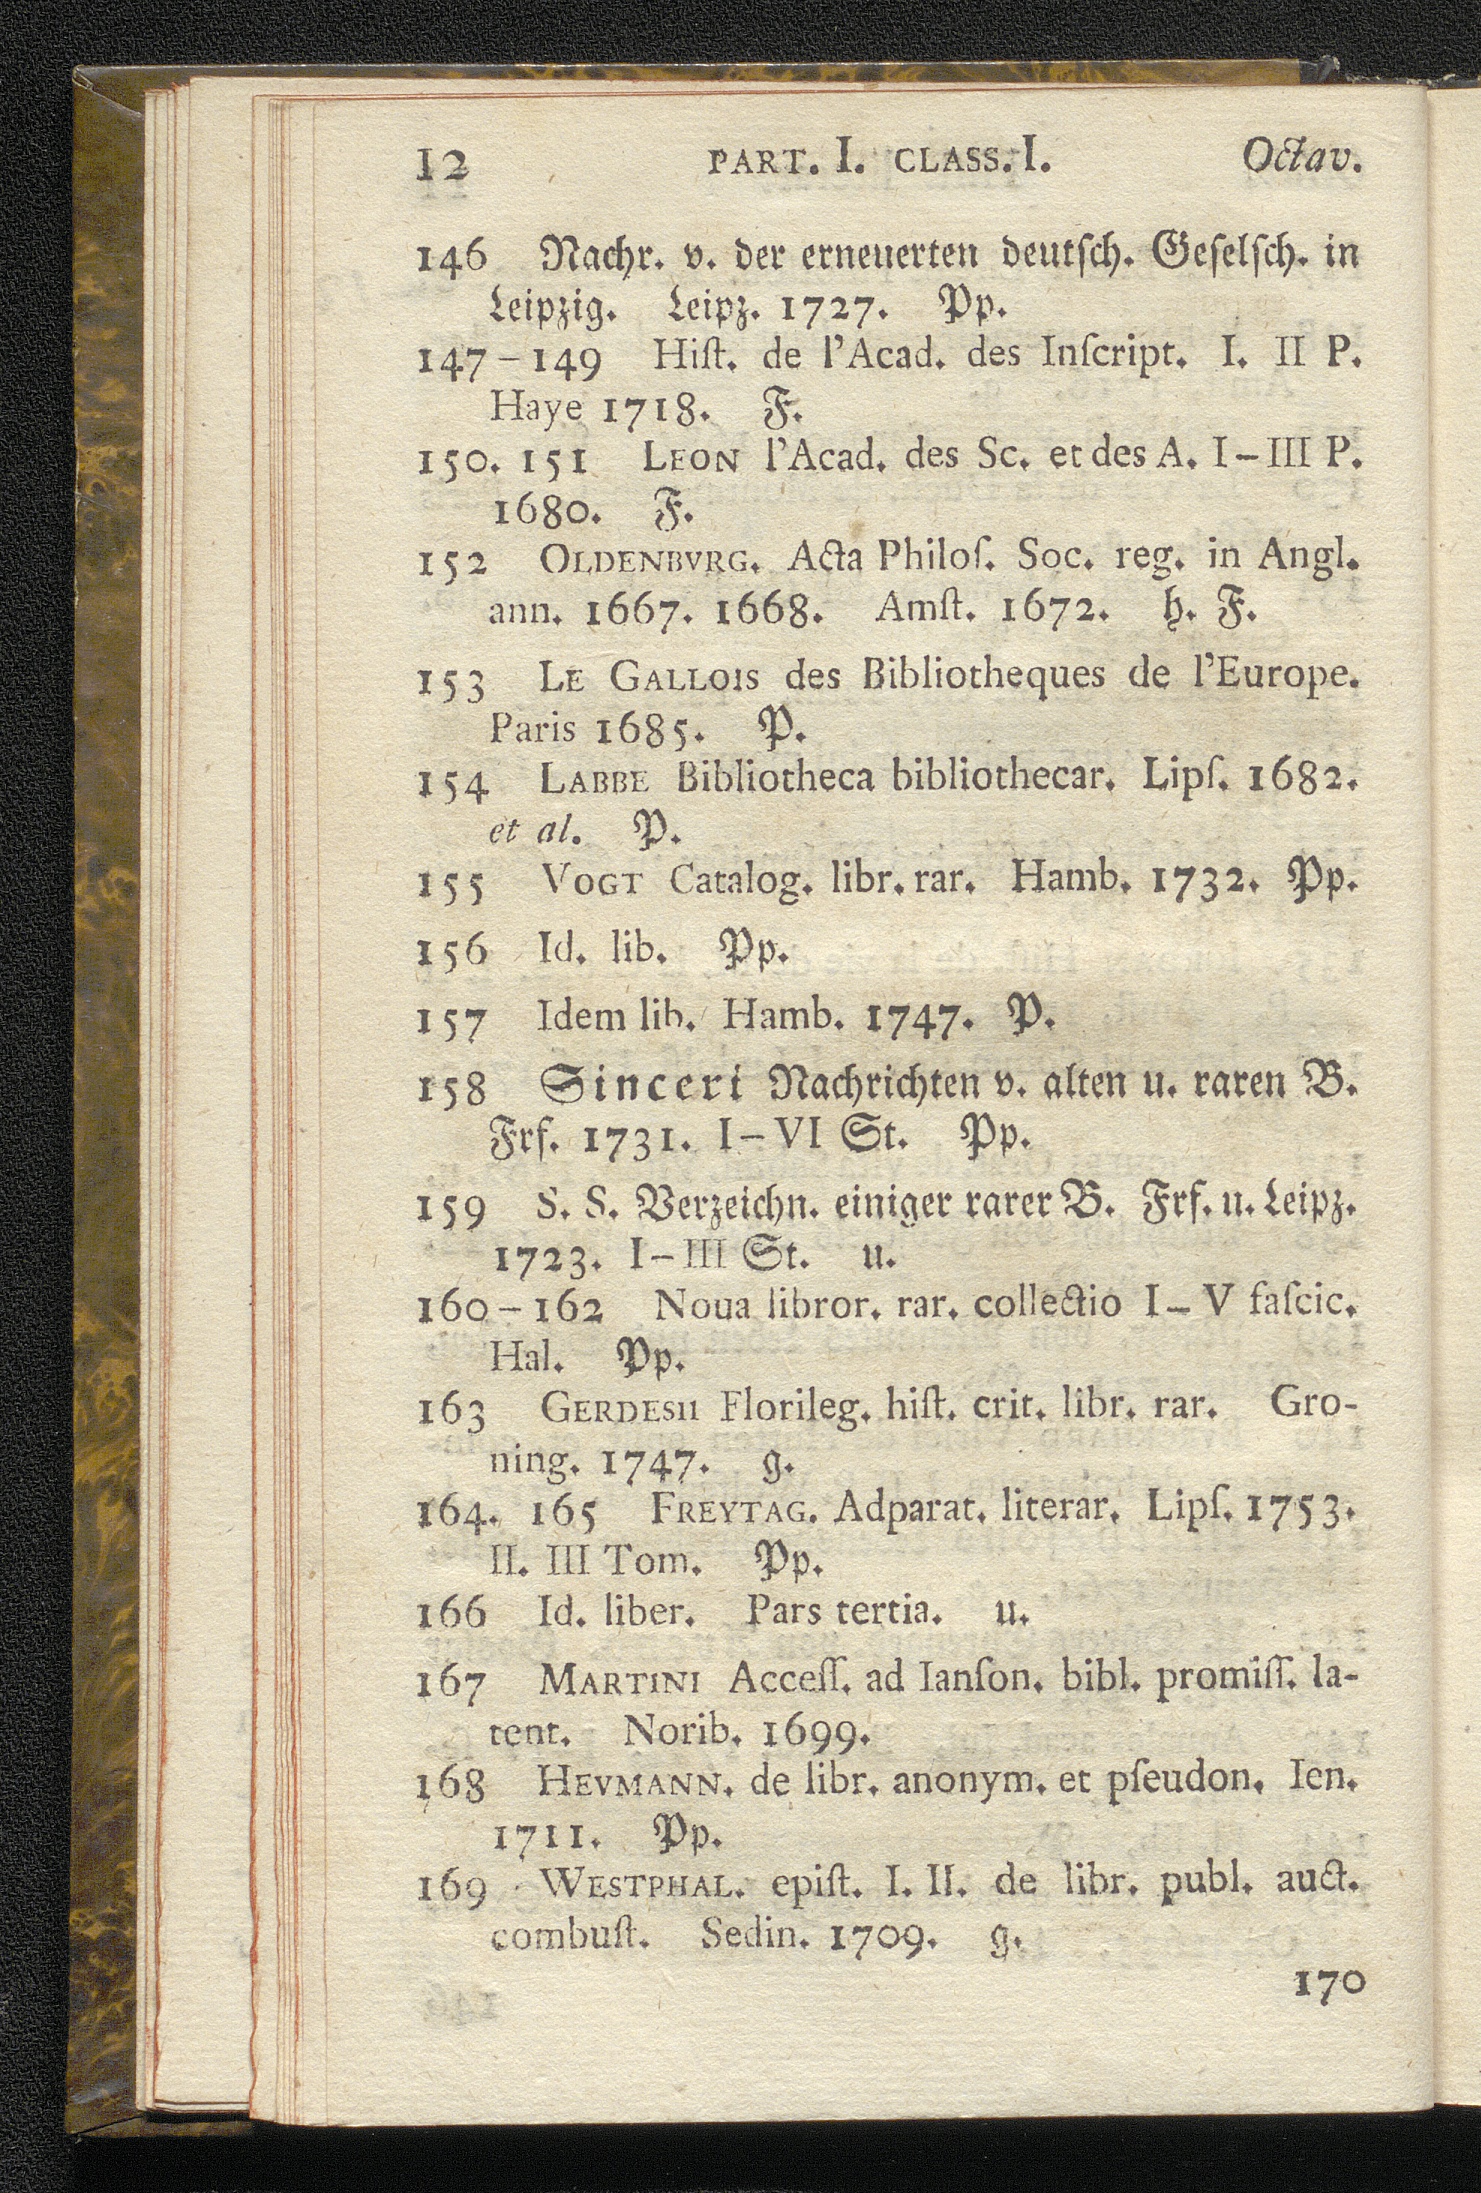 12 PART. I. CLASS. I. Octav.
146 Nachr. v. der erneuerten deutſch. Geſelſch. in
Leipzig. Leipz. 1727. Pp.
147–149 Hiſt. de l'Acad. des Inſcript. I. II P.
Haye 1718. F.
150. 151 LEON l'Acad. des Sc. et des A. I–III P.
1680. F.
152 OLDENBVRG. Acta Philoſ. Soc. reg. in Angl.
ann. 1667. 1668. Amſt. 1672. h. F.
153 LE GALLOIS des Bibliotheques de l'Europe.
Paris 1685. P.
154 LABBE Bibliotheca bibliothecar. Lipſ. 1682.
et al. P.
155 VOGT Catalog. libr. rar. Hamb. 1732. Pp.
156 Id. lib. Pp.
157 Idem lib. Hamb. 1747. P.
158 Sinceri Nachrichten v. alten u. raren B.
Frf. 1731. I–VI St. Pp.
159 S. S. Verzeichn. einiger rarer B. Frf. u. Leipz.
1723. I–III St. u.
160–162 Noua libror. rar. collectio I–V faſcic.
Hal. Pp.
163 GERDESII Florileg. hiſt. crit. libr. rar. Gro-
ning. 1747. g.
164. 165 FREYTAG. Adparat. literar. Lipſ. 1753.
II. III Tom. Pp.
166 Id. liber. Pars tertia. u.
167 MARTINI Acceſſ. ad Ianſon. bibl. promiſſ. la-
tent. Norib. 1699.
168 HEVMANN. de libr. anonym. et pſeudon. Ien.
1711. Pp.
169 WESTPHAL. epiſt. I. II. de libr. publ. auct.
combuſt. Sedin. 1709. g.
170